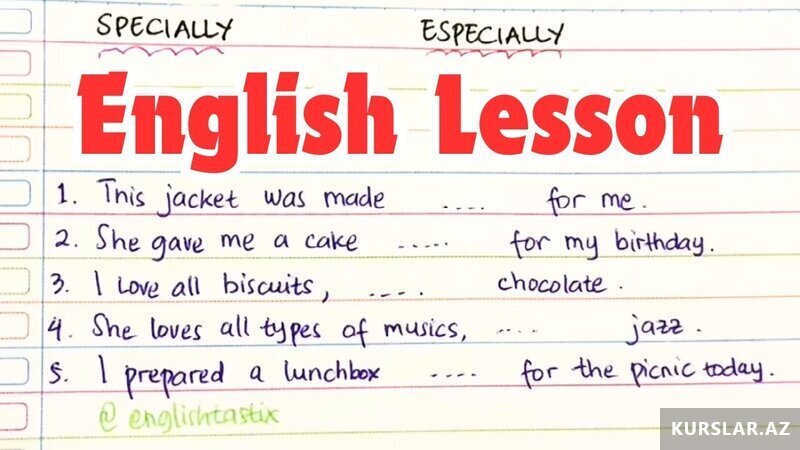 SPECIALLY ESPECIALLY
English Lesson
1. This jacket was made .... for me.
2. She gave me a cake ..... for my birthday.
3. I love all biscuits, .... chocolate.
4. She loves all types of musics, .... jazz.
5. I prepared a lunchbox .... for the picnic today.
@englishtastix
KURSLAR.AZ